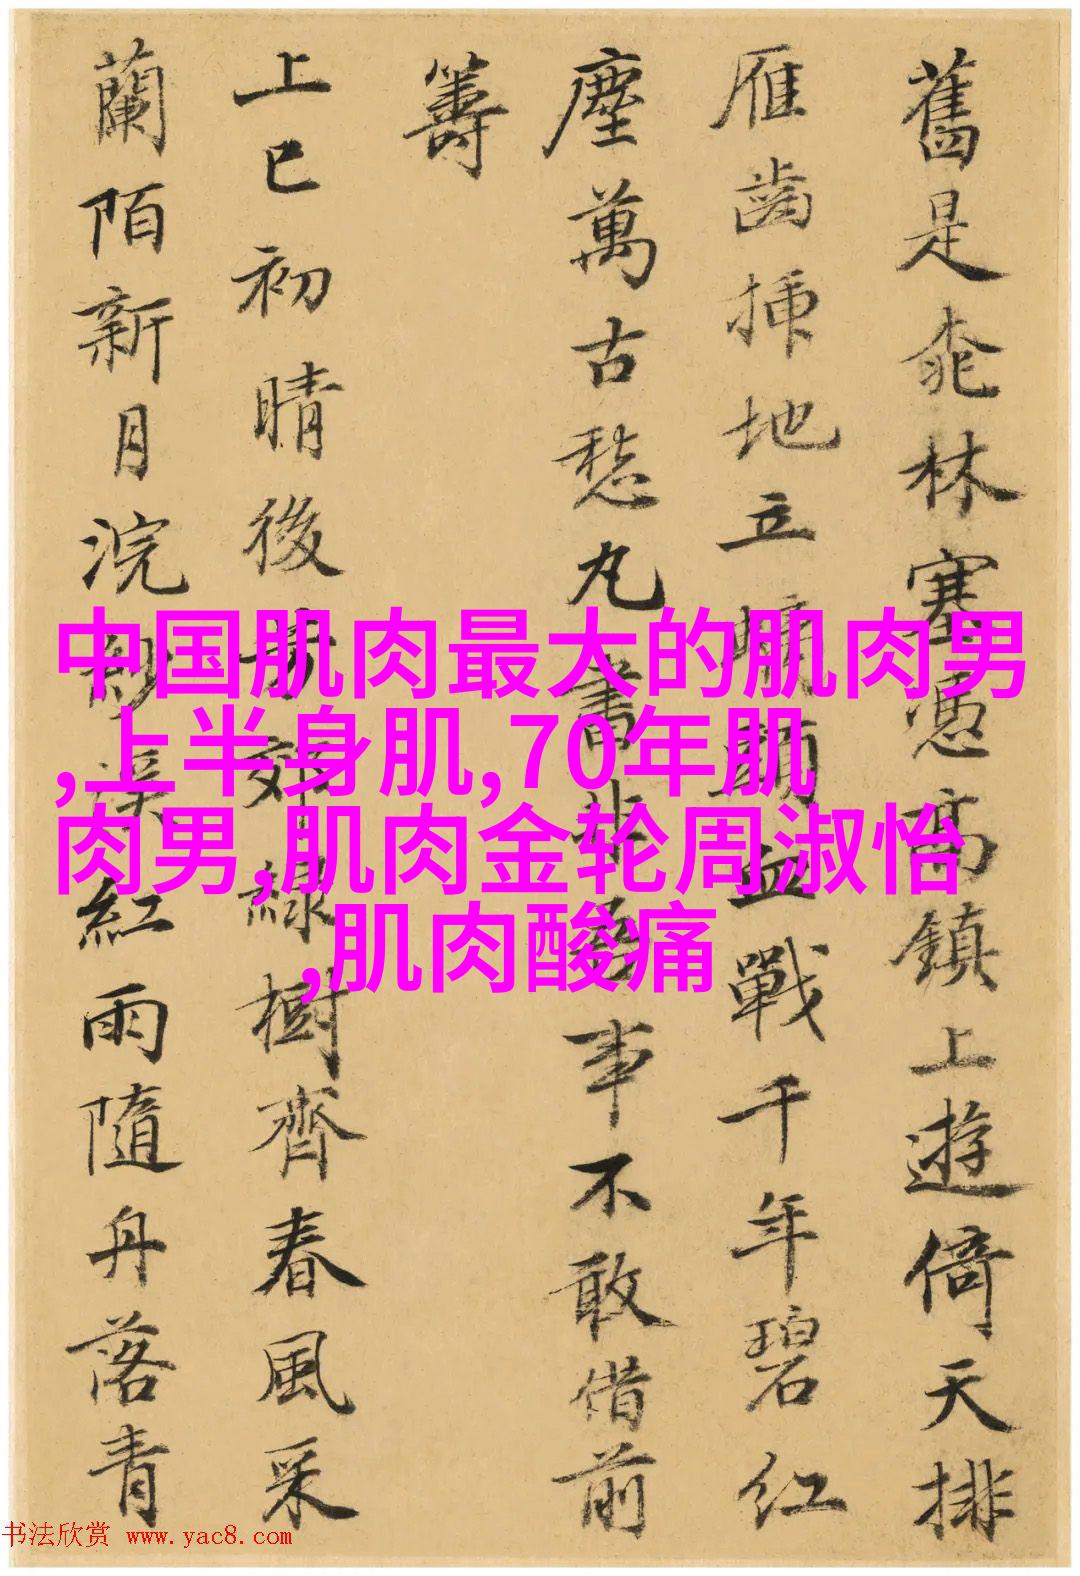 舊是桃林塞憑高鎮上遊倚天排
雁齒插地立頭血戰千年碧紅
塵萬古愁丸書事不敢借前
籌
上巳初晴後郊綠樹齊春風采
蘭陌新月浣紗渠紅雨隨舟落青
中国肌肉最大的肌肉男
,上半身肌,70年肌
肉男,肌肉金轮周淑怡
,肌肉酸痛
书法欣赏 www.yac8.com